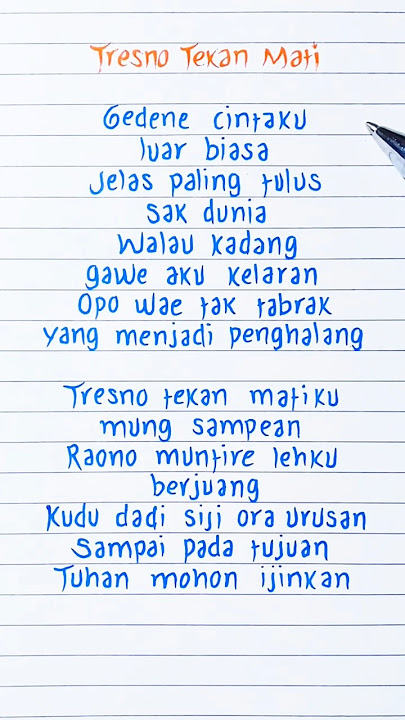 Tresno Tekan Mati
Gedene cintaku
luar biasa
Jelas paling tulus
sak dunia
Walau kadang
gawe aku kelaran
Opo wae tak tabrak
yang menjadi penghalang
Tresno tekan matiku
mung sampean
Raono muntire lehku
berjuang
Kudu dadi siji ora urusan
Sampai pada tujuan
Tuhan mohon ijinkan